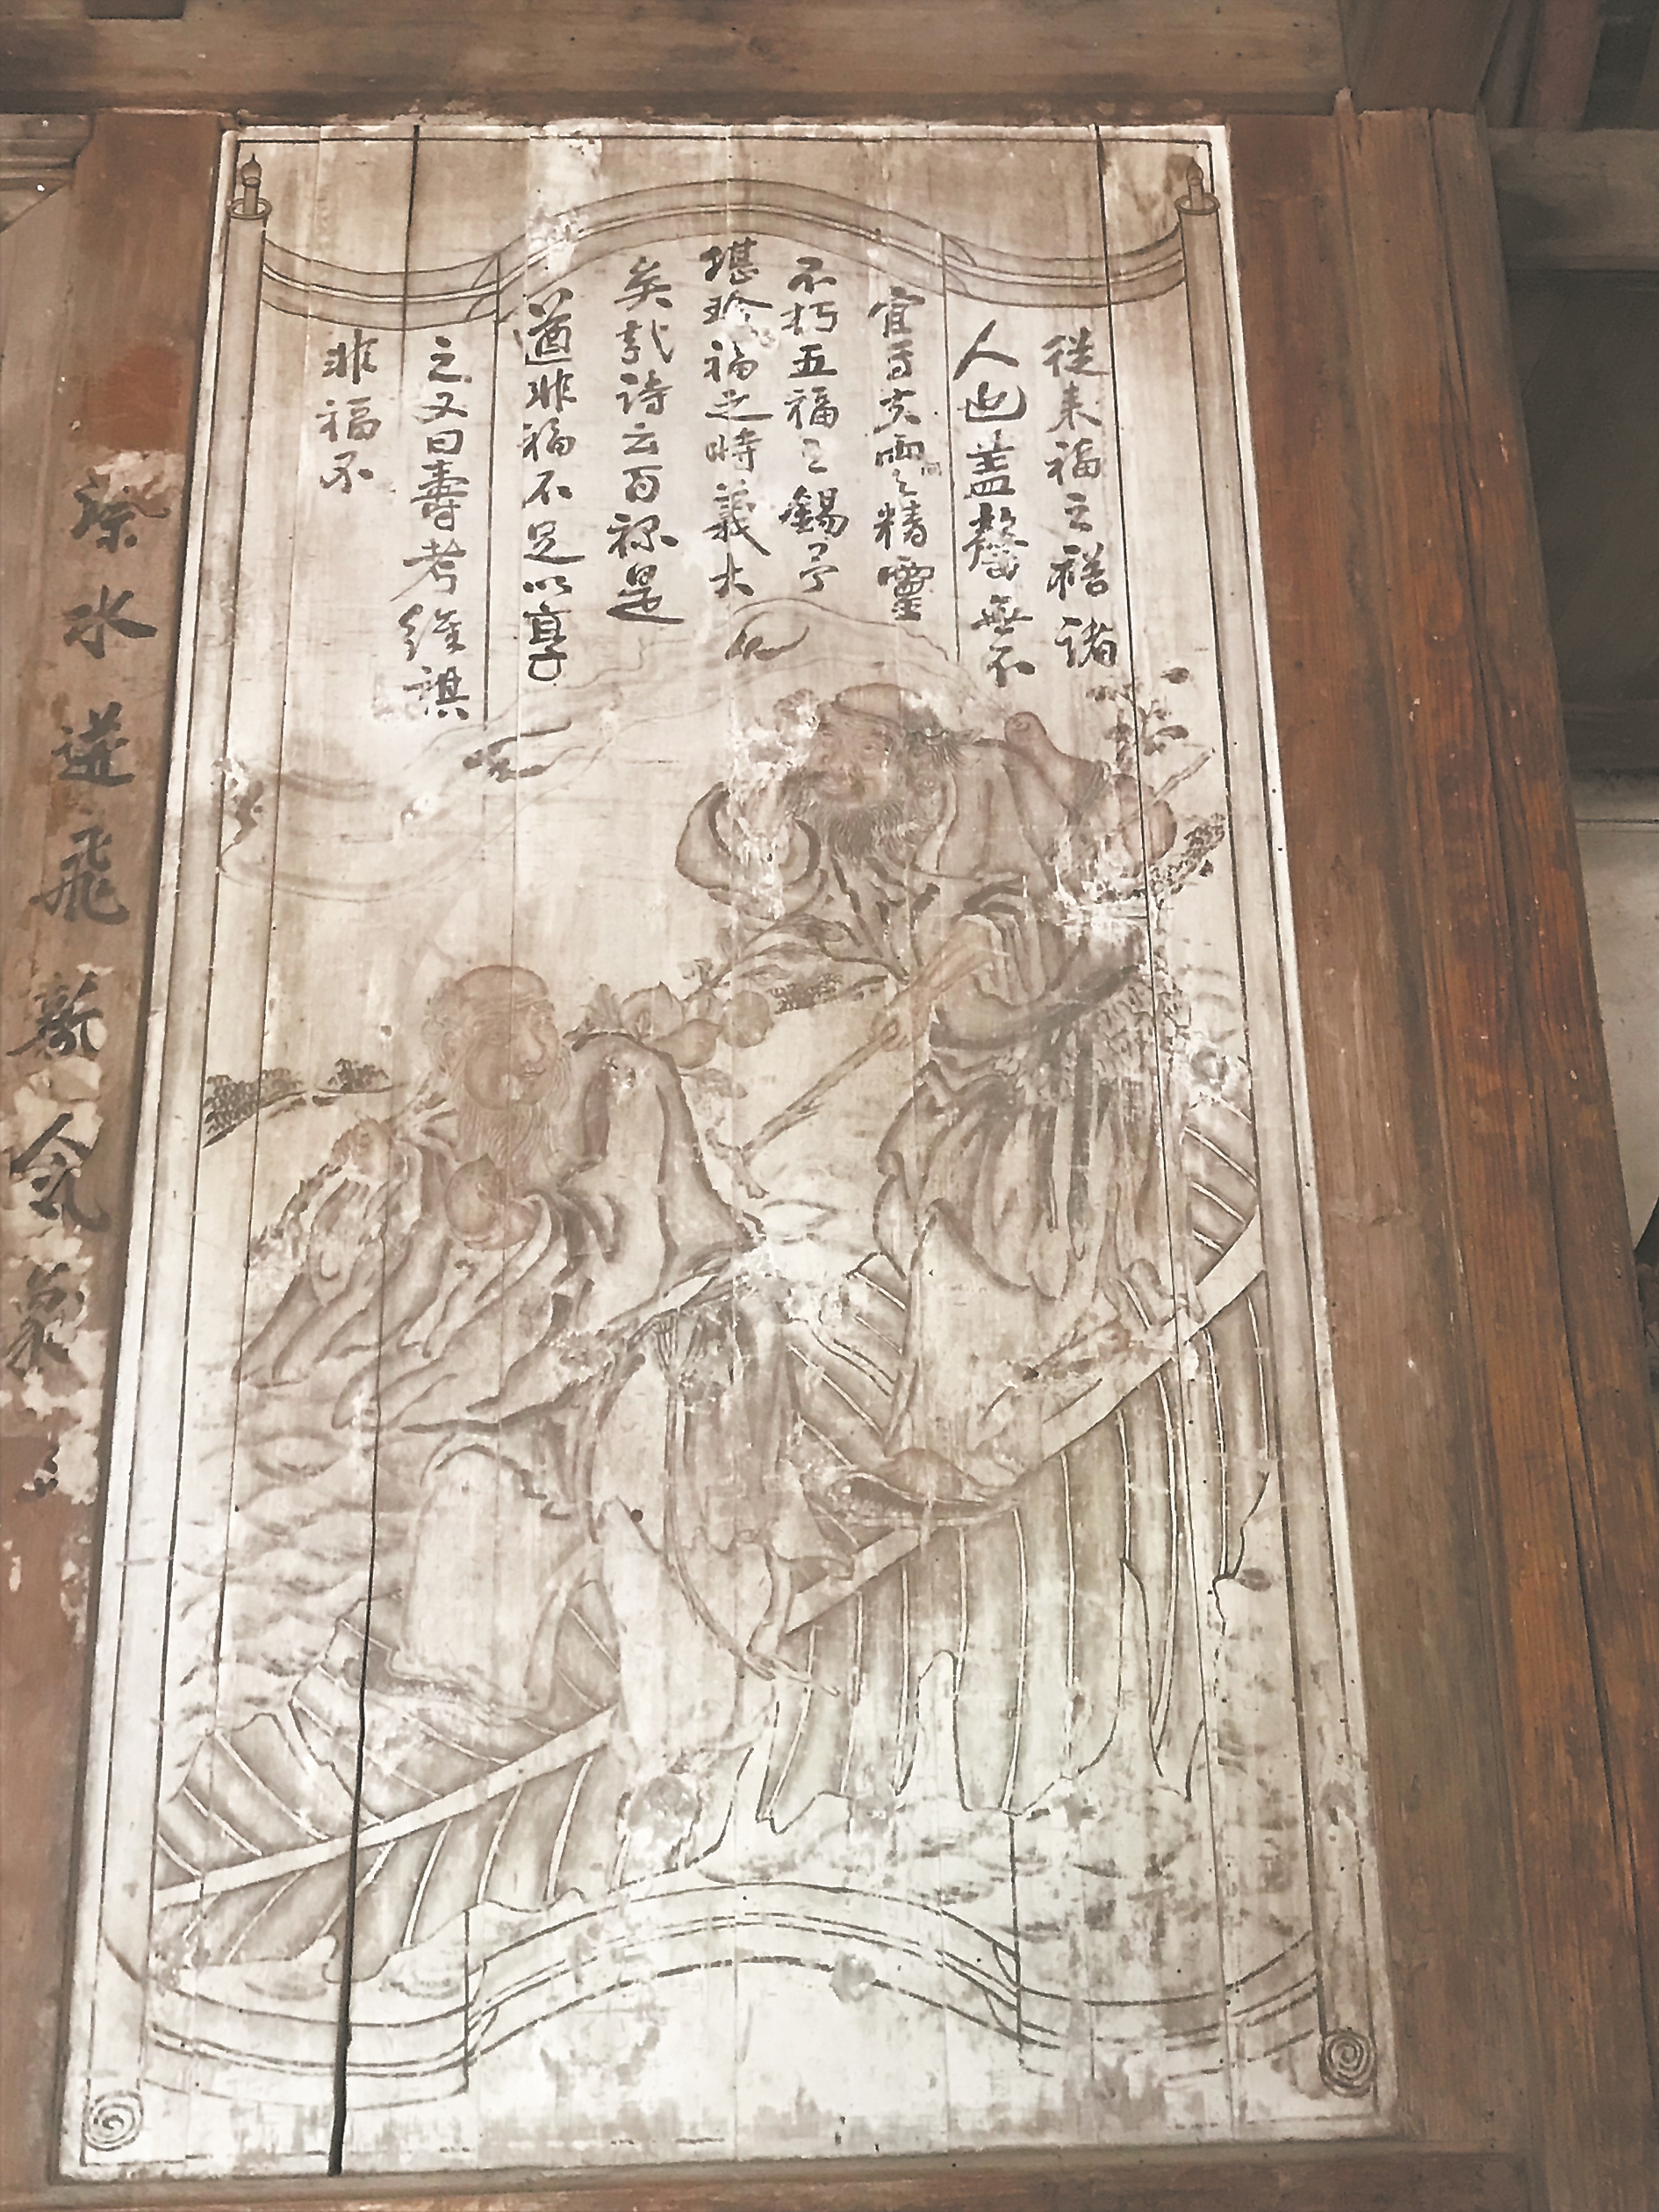 從來福之禧諸
人也蓋罄無不
宜百 之精靈
不朽五福之錫予
堪珍福之時義大
矣哉詩云百祿是
遒非福不足以享
之又曰壽考維祺
非福不
水迸飛新氣象